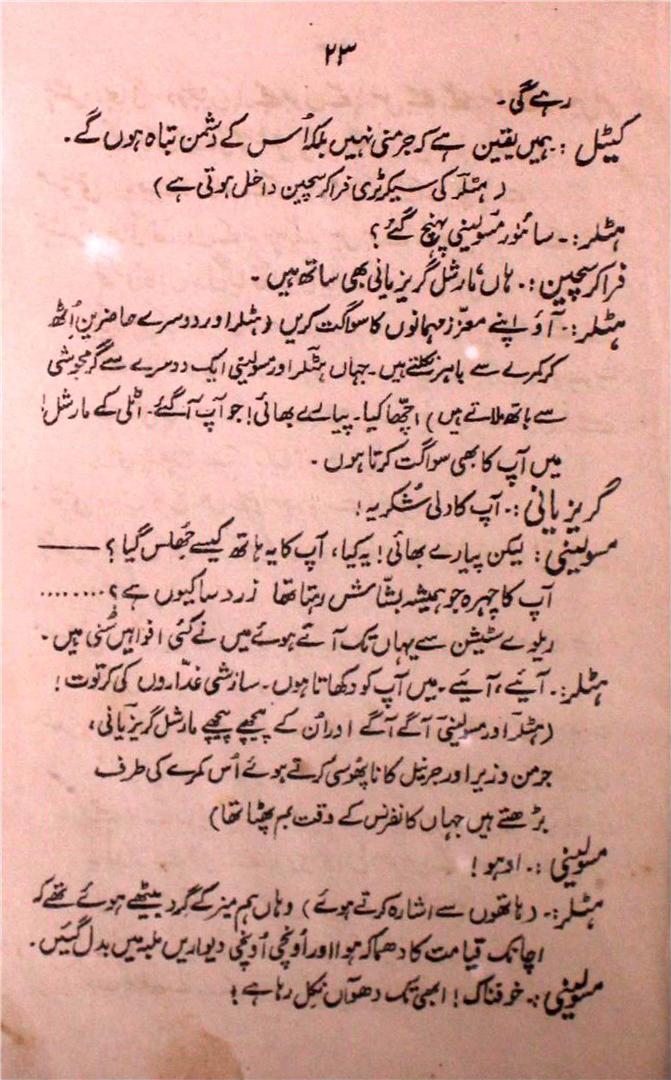 ۲۳
رہے گی۔
کیٹل :۔ ہمیں یقین ہے کہ جرمنی نہیں بلکہ اُس کے دشمن تباہ ہوں گے۔
(ہٹلر کی سیکرٹری فراکرسچین داخل ہوتی ہے)
ہٹلر:۔ سائنور مسولینی پہنچ گئے؟
فراکرسچین :۔ ہاں، مارشل گریزیانی بھی ساتھ ہیں۔
ہٹلر:۔ آؤ اپنے معزز مہمانوں کا سواگت کریں (ہٹلر اور دوسرے حاضرین اُٹھ
کر کمرے سے باہر نکلتے ہیں۔ جہاں ہٹلر اور مسولینی ایک دوسرے سے گرمجوشی
سے ہاتھ ملاتے ہیں) اچھا کیا۔ پیارے بھائی! جو آپ آگئے۔ اٹلی کے مارشل!
میں آپ کا بھی سواگت کرتا ہوں۔
گریزیانی :۔ آپ کا دلی شکریہ!
مسولینی :۔ لیکن پیارے بھائی! یہ کیا، آپ کا یہ ہاتھ کیسے جُھلس گیا؟ ——
آپ کا چہرہ جو ہمیشہ بشاشس رہتا تھا زرد سا کیوں ہے؟........
ریلوے سٹیشن سے یہاں تک آتے ہوئے میں نے کئی افواہیں سُنی ہیں۔
ہٹلر:۔ آئیے، آئیے۔ میں آپ کو دکھاتا ہوں۔ سازشی غدّاروں کی کرتوت!
(ہٹلر اور مسولینی آگے آگے اور اُن کے پیچھے پیچھے مارشل گریزیانی،
جرمن وزیر اور جرنیل کانا پھوسی کرتے ہوئے اُس کمرے کی طرف
بڑھتے ہیں جہاں کانفرنس کے وقت بم پھٹا تھا)
مسولینی :۔ اوہو!
ہٹلر:۔ (ہاتھوں سے اشارہ کرتے ہوئے) وہاں ہم میز کے گرد بیٹھے ہوئے تھے کہ
اچانک قیامت کا دھماکہ ہوا اور اُونچی اُونچی دیواریں ملبہ میں بدل گئیں۔
مسولینی :۔ خوفناک! ابھی تک دھوآں نکل رہا ہے!